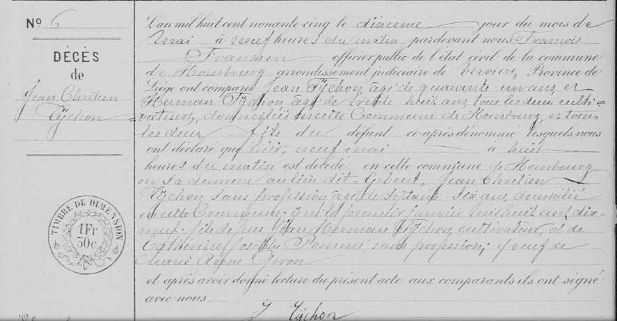 No 6
DÉCÈS
de
Jean Chrétien
Tychon
TIMBRE DE DIMENSION
1 Fr
50 c
L'an mil huit cent nonante cinq le dixième jour du mois de
mai à neuf heures du matin pardevant nous François
Franssen officier public de l'état civil de la commune
de Hombourg arrondissement judiciaire de Verviers, Province de
Liége ont comparu Jean Tychon âgé de quarante un ans et
Herman Tychon âgé de trente trois ans tous les deux culti-
vateurs, domiciliés en cette Commune de Hombourg et tous
les deux fils du défunt ci-après dénommé lesquels nous
ont déclaré que hier, neuf mai à huit
heures du matin est décédé en cette commune de Hombourg
en sa demeure au lieu dit Jean Chrétien
Tychon sans profession âgé de septante six ans domicilié
en cette Commune; y né le premier janvier mil huit cent dix
neuf; fils de feu Jean Herman Tychon, cultivateur, et de
Catherine Josèphe sans profession; veuf de
Marie Agne
et après avoir donné lecture du présent acte aux comparants ils ont signé
avec nous
J Tychon